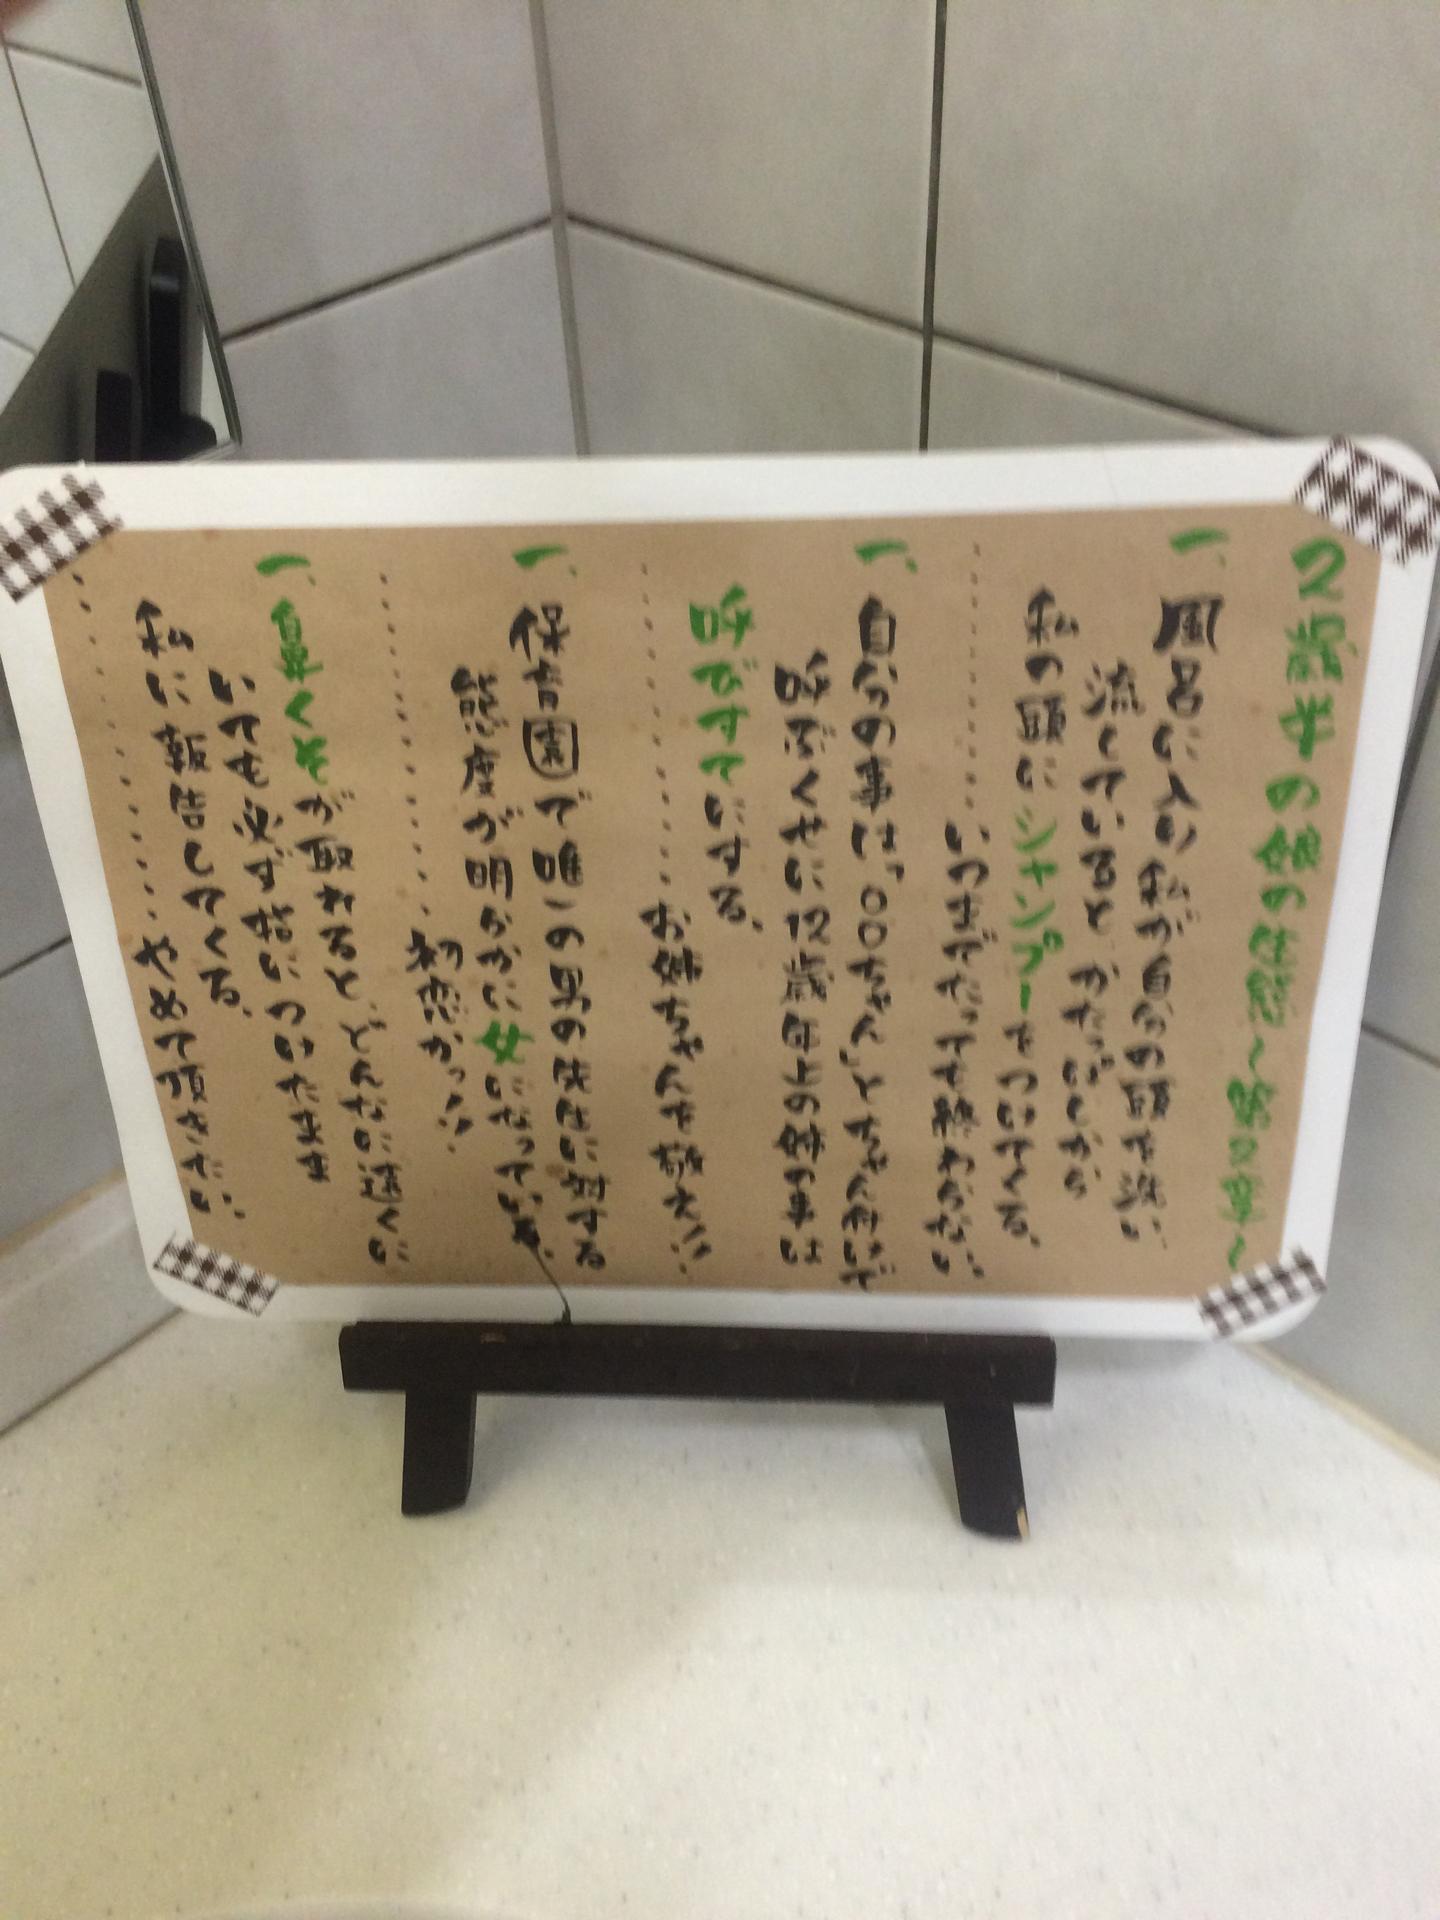 2歳半の娘の生態〜第2章〜
一、風呂に入り私が自分の頭を洗い
流していると かたっぱしから
私の頭にシャンプーをつけてくる。
………いつまでたっても終わらない…
一、自分の事は「○○ちゃん」とちゃん付けで
呼ぶくせに12歳年上の姉の事は
呼びすてにする。
………お姉ちゃんを敬え!!…
一、保育園で唯一の男の先生に対する
態度が明らかに女になっている。
………初恋かっ!!
一、鼻くそが取れると、どんなに遠くに
いても必ず指につけたまま
私に報告してくる。
………やめて頂きたい…